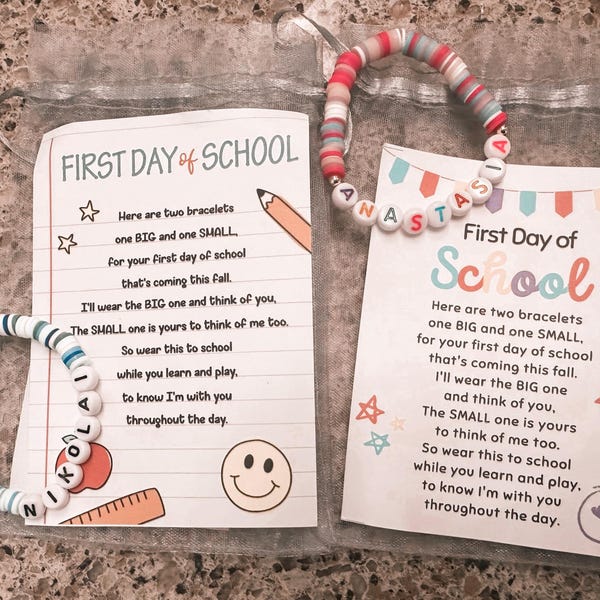 FIRST DAY of SCHOOL
Here are two bracelets
one BIG and one SMALL,
for your first day of school
that's coming this fall.
I'll wear the BIG one and think of you,
The SMALL one is yours to think of me too.
So wear this to school
while you learn and play,
to know I'm with you
throughout the day.
NIKOLAI
ANASTASIA
First Day of
School
Here are two bracelets
one BIG and one SMALL,
for your first day of school
that's coming this fall.
I'll wear the BIG one
and think of you,
The SMALL one is yours
to think of me too.
So wear this to school
while you learn and play,
to know I'm with you
throughout the day.